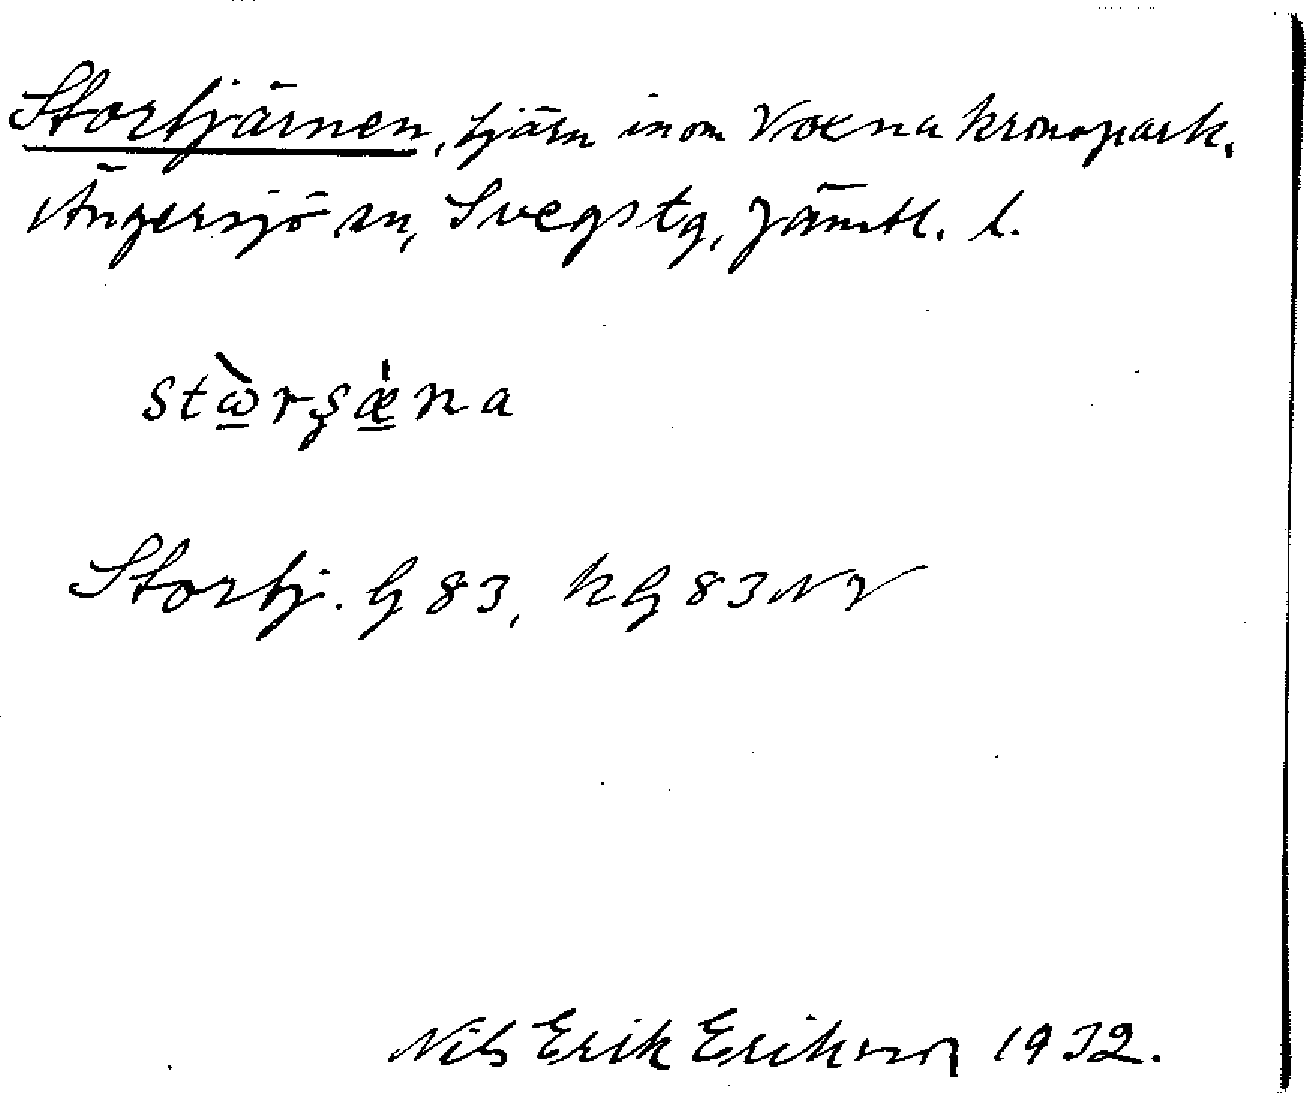 Stortjärnen, tjärn inom Voxna kronopark,
Ängersjö sn, Svegs tg, Jämtl. l.
stὼ̲rʂǽ̲na
Stortj. G 83, KG 83 NV
Nils Erik Erikson 1932.